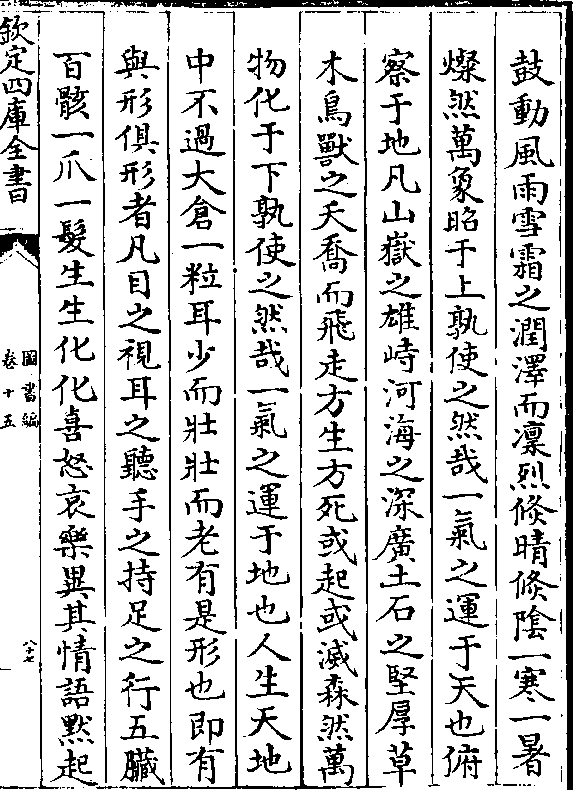 鼓動風雨雪霜之潤澤而凛烈倐晴倐隂一寒一暑
燦然萬象昭于上孰使之然哉一氣之運于天也俯
察于地凡山嶽之雄峙河海之深廣土石之堅厚草
木鳥獸之夭喬而飛走方生方死或起或滅森然萬
物化于下孰使之然哉一氣之運于地也人生天地
中不過大倉一粒耳少而壯壯而老有是形也即有
與形俱形者凡目之視耳之聽手之持足之行五臟
百骸一爪一髮生生化化喜怒哀樂異其情語黙起
欽定四庫全書
圖書編
卷十五
八十七